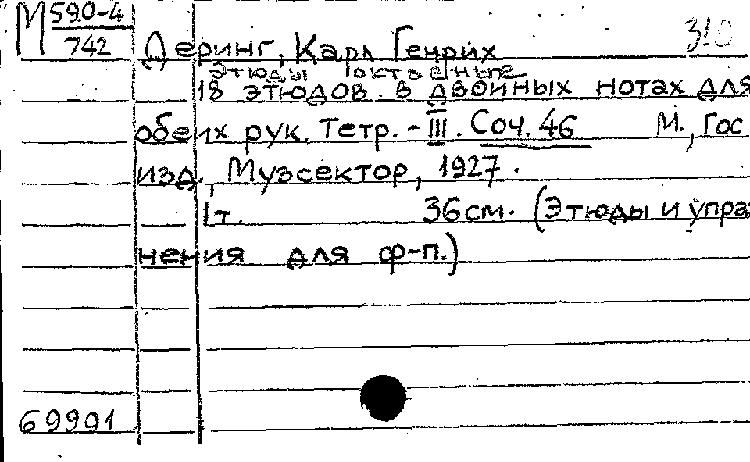 М 590-4
742
310
Деринг, Карл Генрих
Этюды октавные
18 этюдов в двойных нотах для
обеих рук. Тетр. - III. Соч. 46 М., Гос
изд., Музсектор, 1927.
1 т. 36 см. (Этюды и упраж
нения для ф-п.)
69991